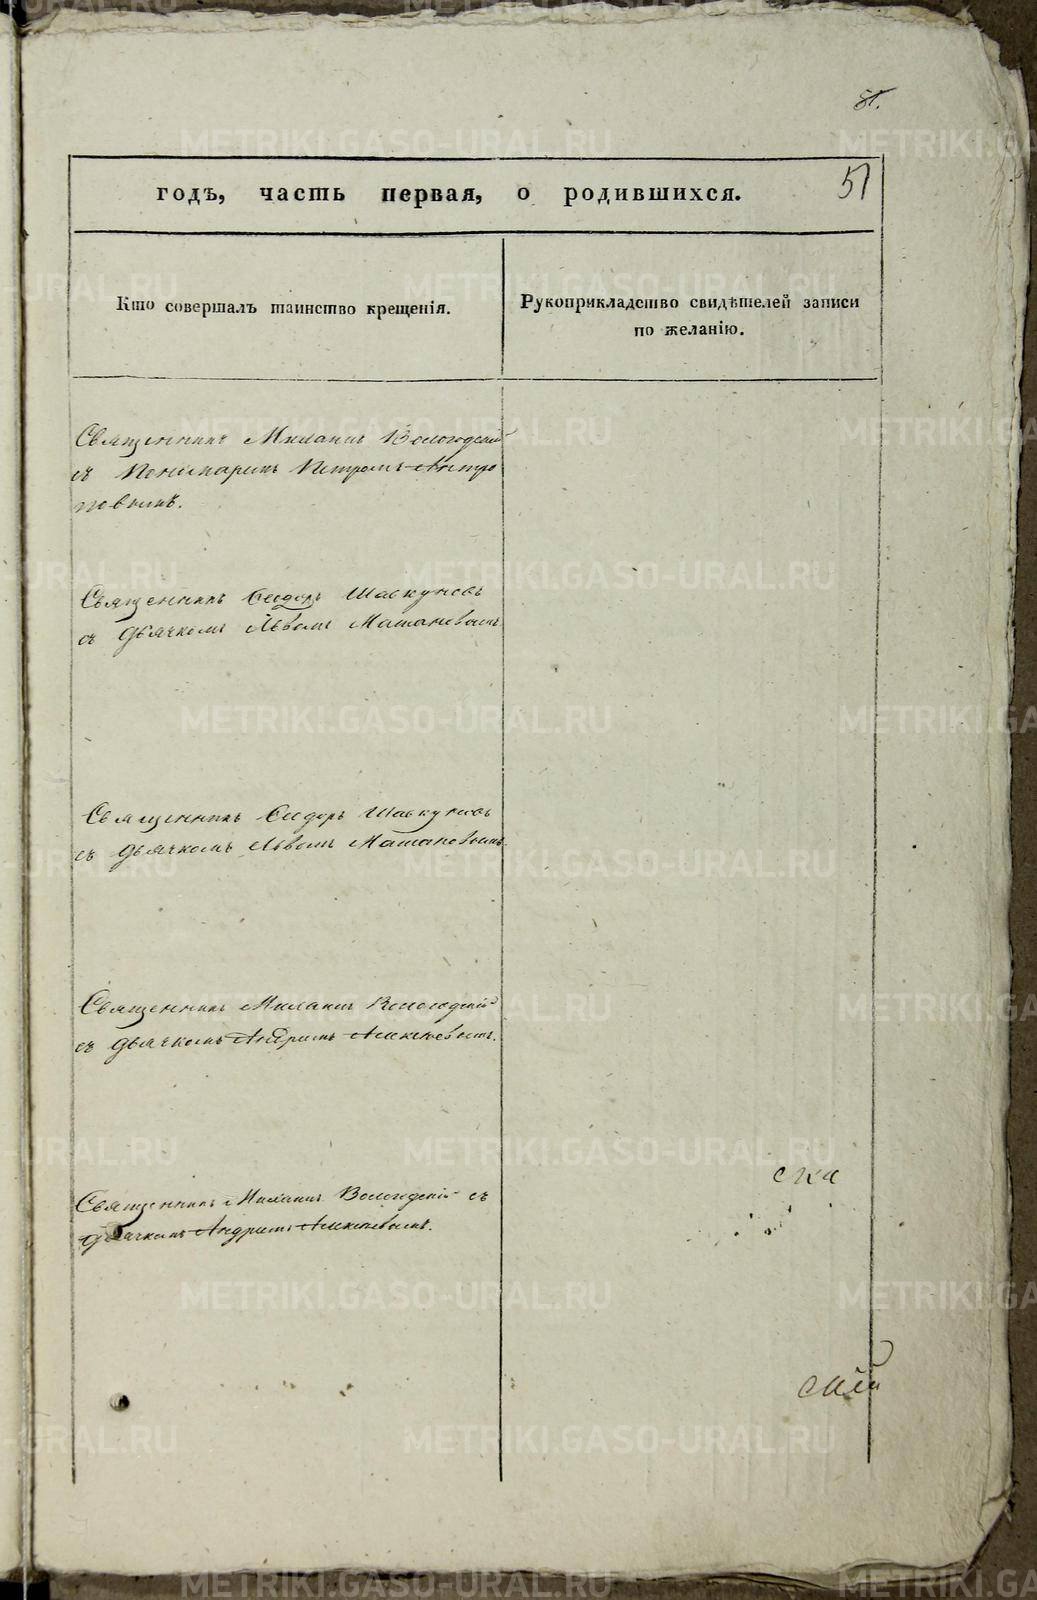 51.
годъ, часть первая, о родившихся. 51
Кто совершалъ таинство крещенія.
Рукоприкладство свидѣтелей записи
по желанію.
Священникъ Михаилъ Вологодскій
съ Пономаремъ Петромъ Антро
повымъ.
Священникъ Ѳеодоръ Шавкуновъ
съ дьячкомъ Львомъ Матановымъ
Священникъ Ѳеодоръ Шавкуновъ
съ дьячкомъ Львомъ Матановымъ.
Священникъ Михаилъ Вологодскій
съ дьячкомъ Андреемъ Алексѣевымъ.
Священникъ Михаилъ Вологодскій съ
дьячкомъ Андреемъ Алексѣевымъ.
METRIKI.GASO-URAL.RU